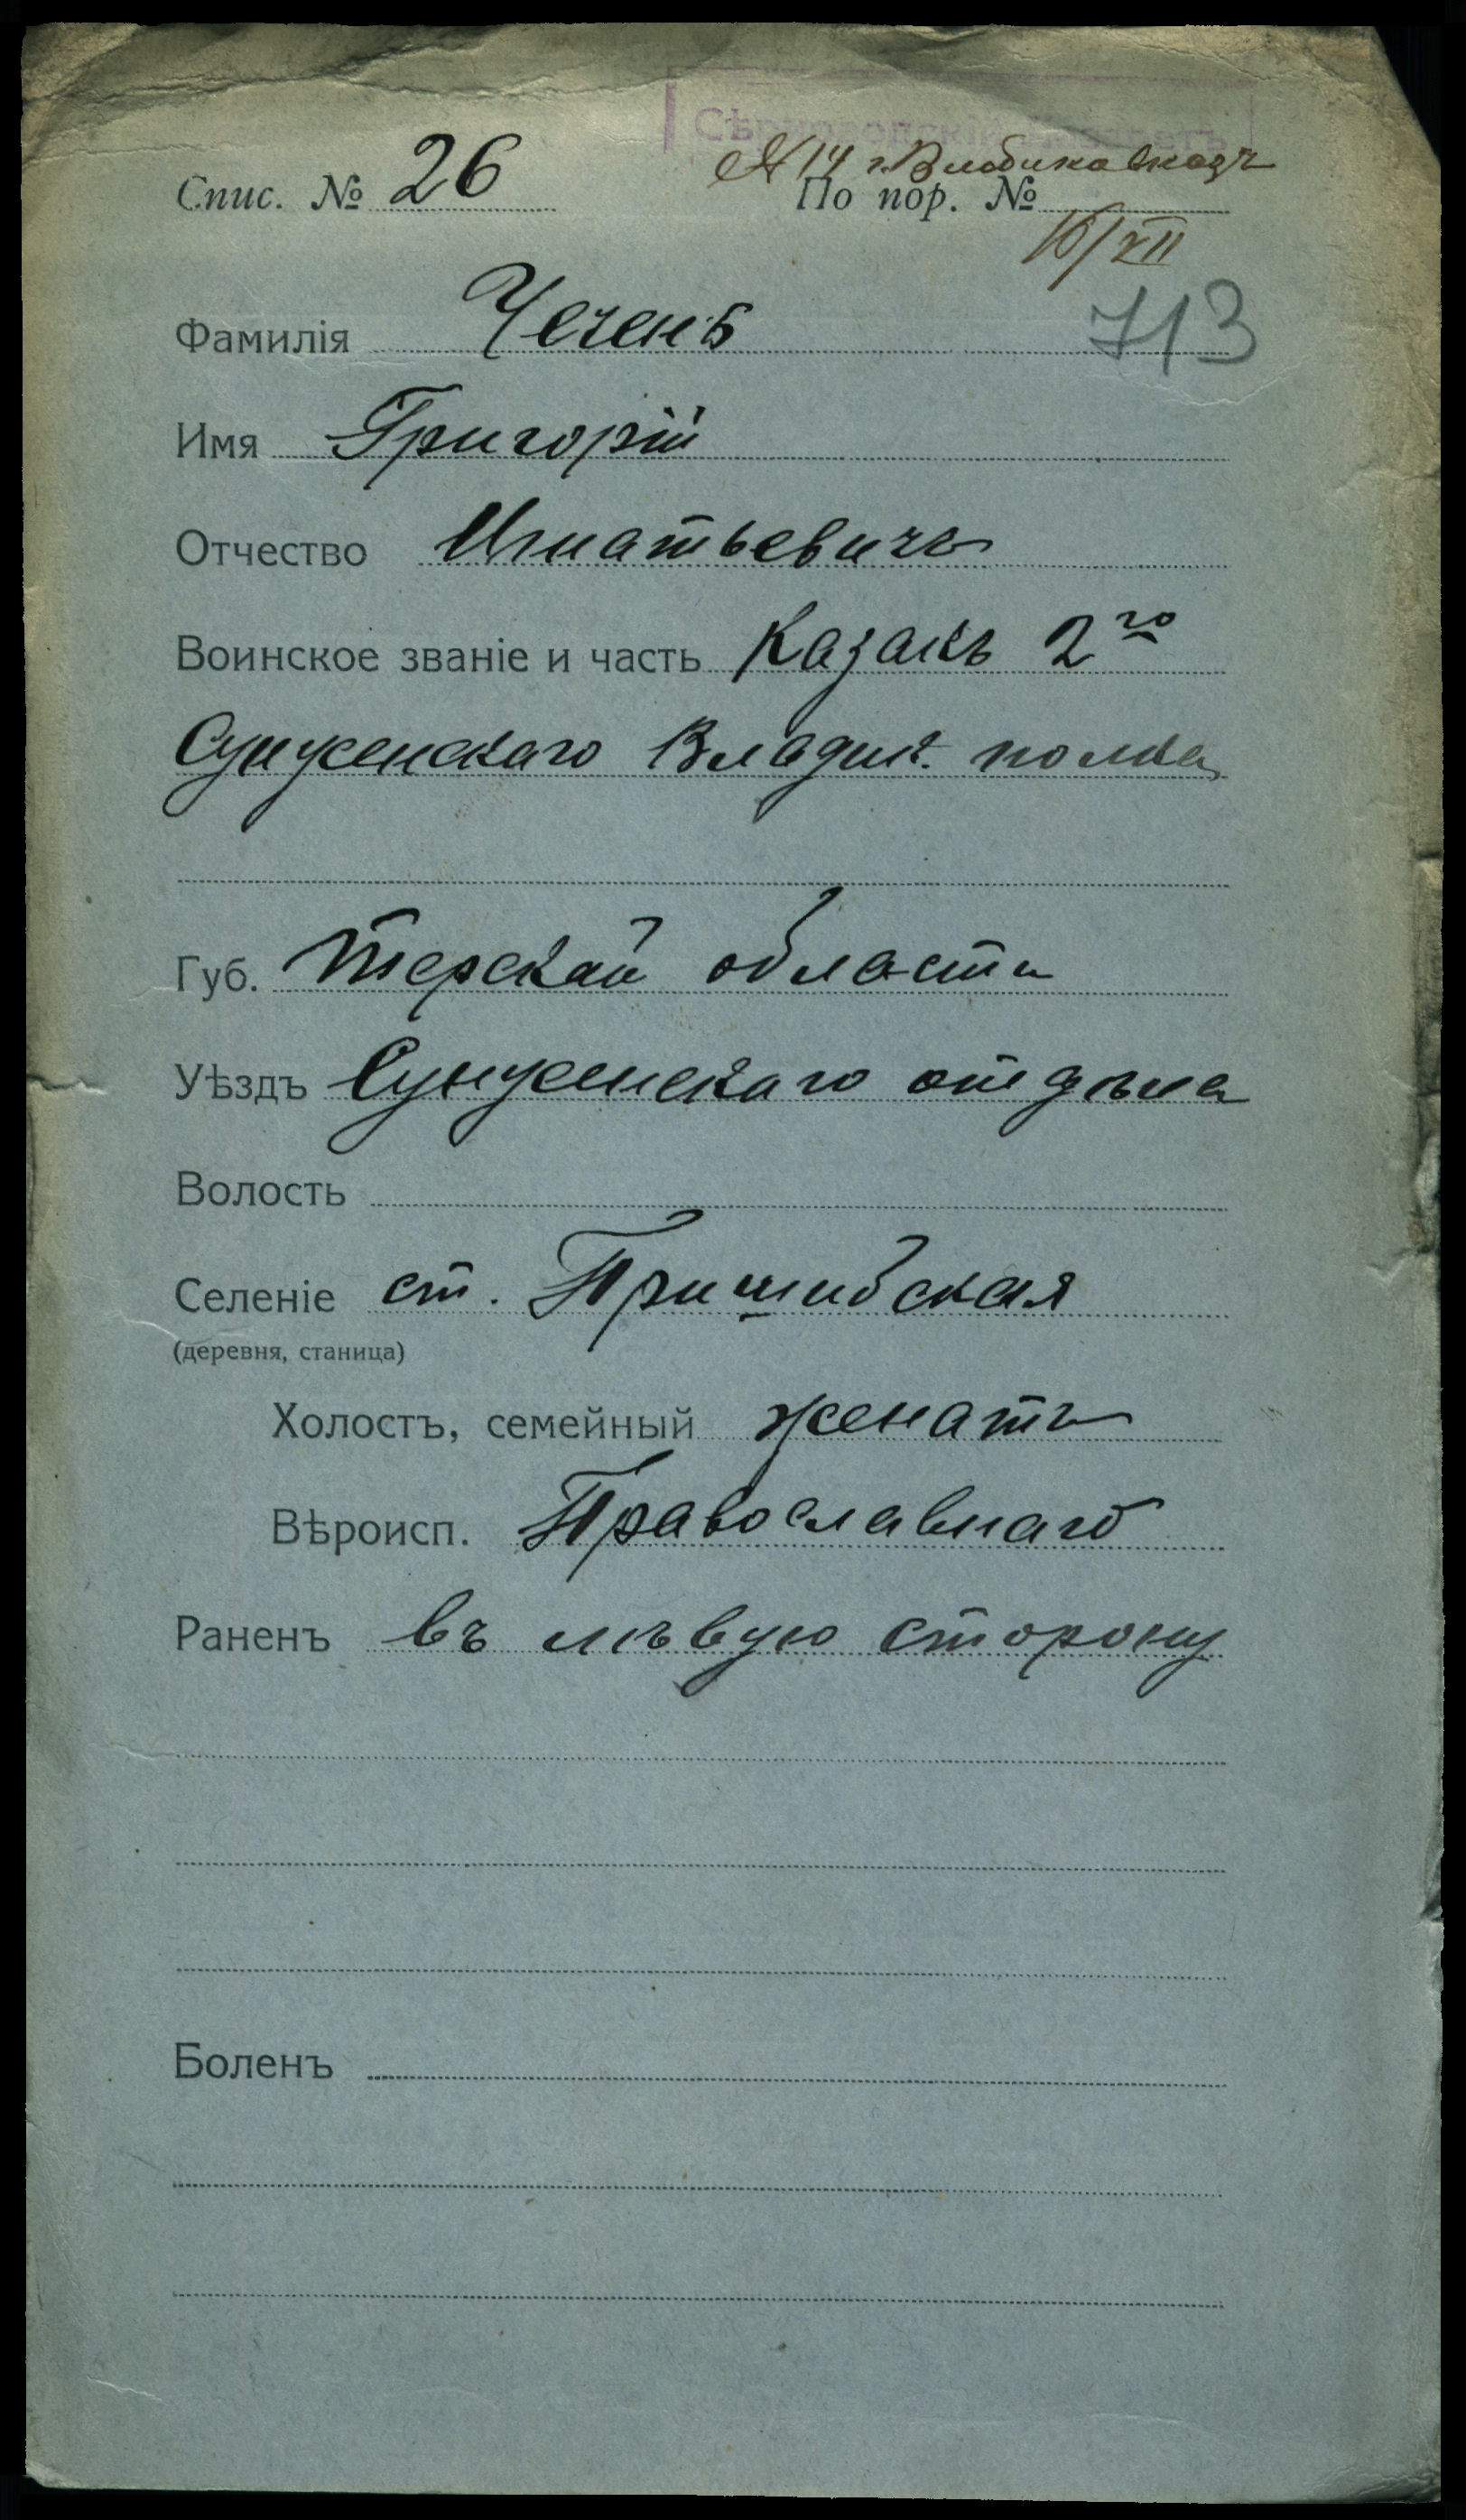 Спис. № 26
№ 14 г. Владикавказъ
По пор. №
16/XII
Фамилія Чеченъ
713
Имя Григорій
Отчество Игнатьевичъ
Воинское званіе и часть Казакъ 2го
Сунженскаго Владик. полка
Губ. Терской области
Уѣздъ Сунженскаго отдѣла
Волость
Селеніе ст. Пришибская
(деревня, станица)
Холостъ, семейный женатъ
Вѣроисп. Православнаго
Раненъ въ лѣвую сторону
Боленъ